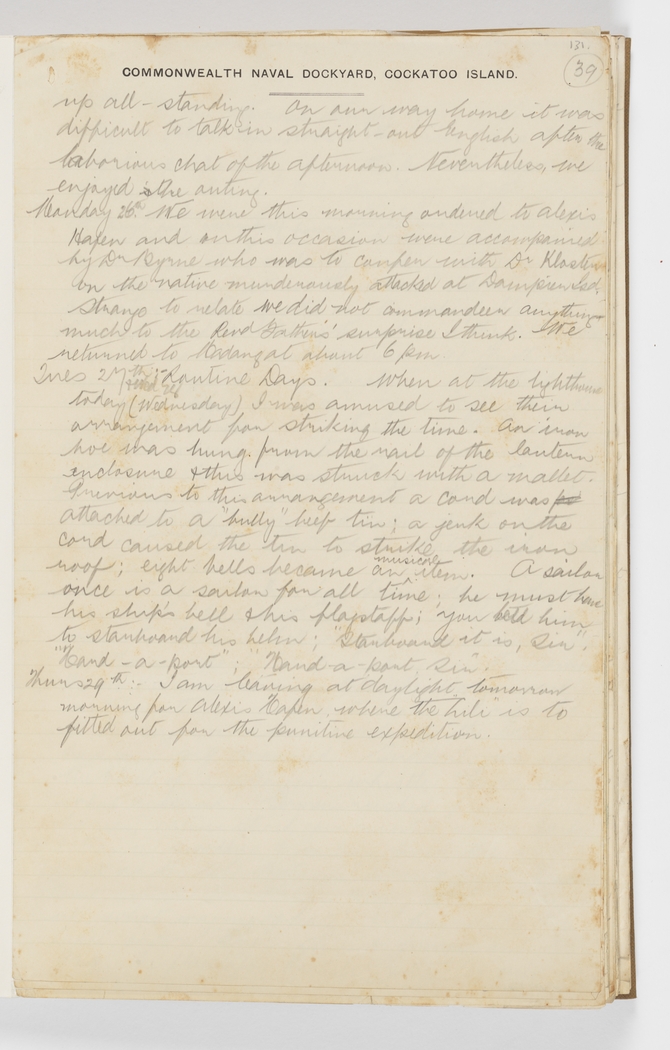 131.
39
COMMONWEALTH NAVAL DOCKYARD, COCKATOO ISLAND.
up all-standing. On our way home it was
difficult to talk in straight-out English after the
laborious chat of the afternoon. Nevertheless, we
enjoyed the outing.
Monday 26th We were this morning ordered to Alexis
Hafen and on this occasion were accompanied
by Dr Byrne who was to confer with Dr Klosten
on the native murderously attacked at Dampier Isd.
Strange to relate we did not commandeer anything
much to the Revd Fathers' surprise I think. We
returned to Madang at about 6 pm.
Tues 27th Routine Days. When at the lighthouse
Wed 28
today (Wednesday) I was amused to see their
arrangement for striking the time. An iron
hoe was hung from the rail of the lantern
enclosure & this was struck with a mallet.
Previous to this arrangement a cord was
attached to a "bully" beef tin; a jerk on the
cord caused the tin to strike the iron
roof; eight bells became an musical item. A sailor
once is a sailor for all time; he must have
his ship's bell & his flagstaff; you told him
to starboard his helm; "Starboard it is, Sir".
"Hard-a-port"; "Hard-a-port Sir".
Thurs 29th:- I am leaving at daylight tomorrow
morning for Alexis Hafen where the "Lili" is to
fitted out for the punitive expedition.